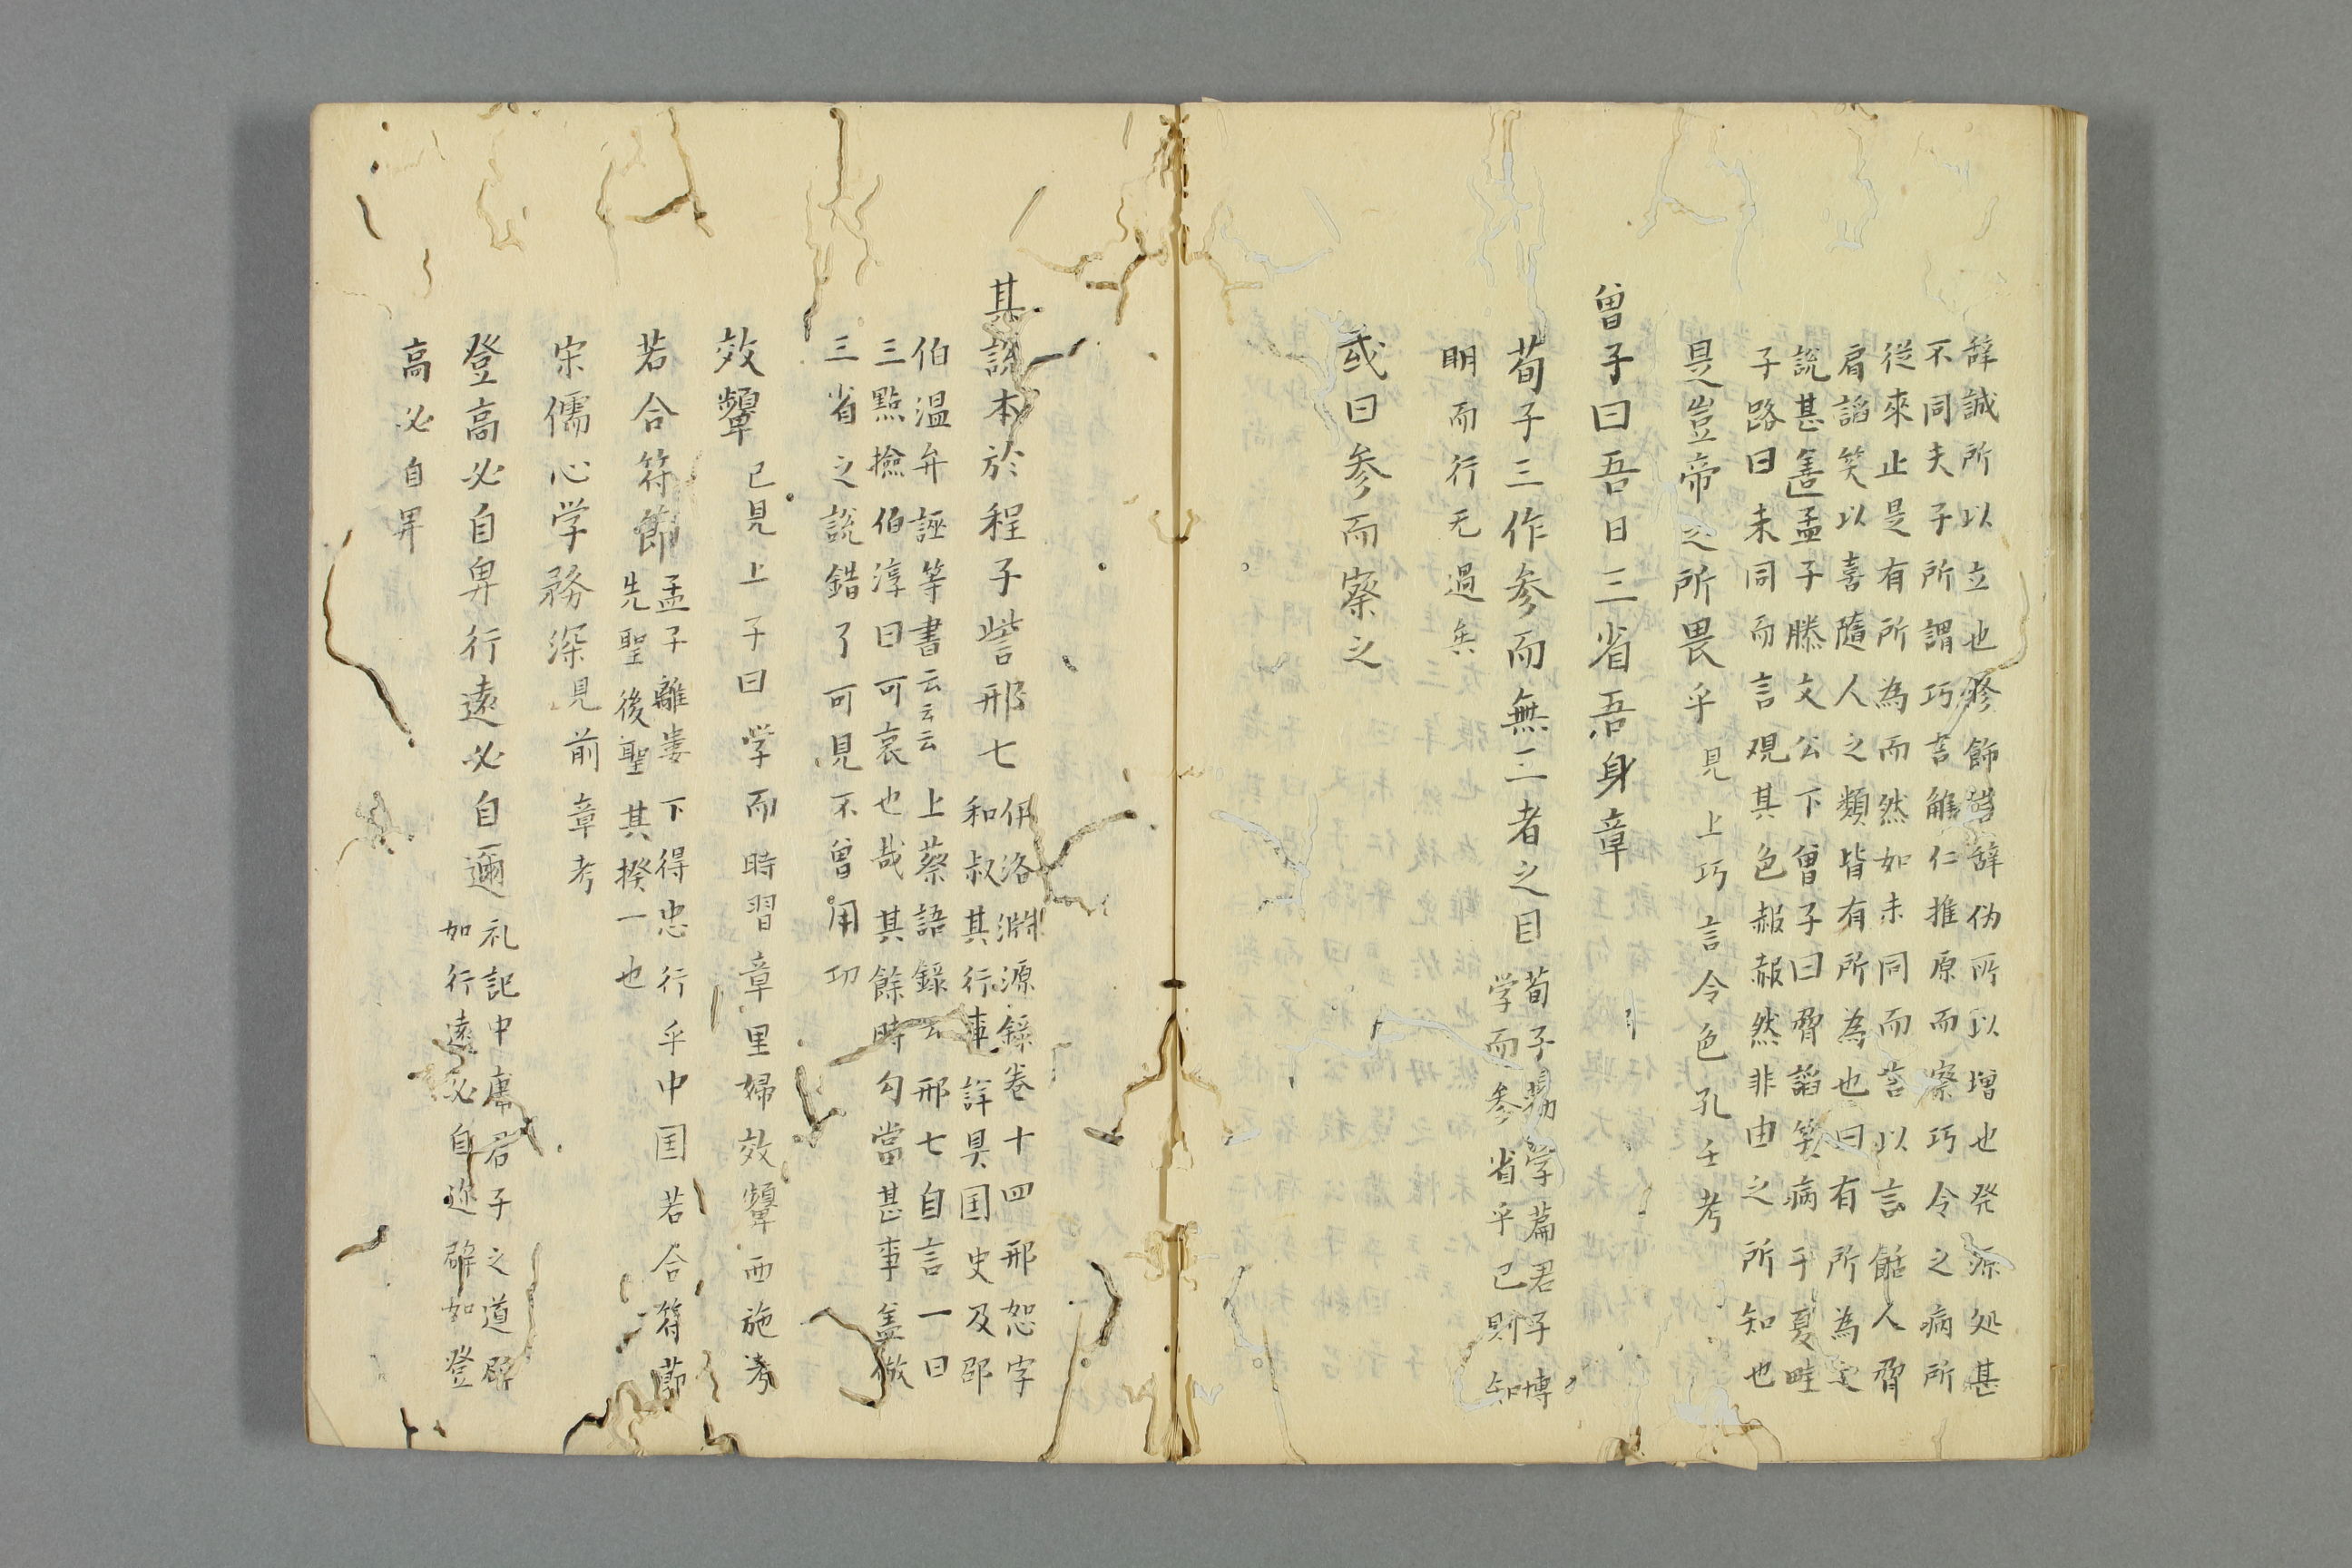 辞誠所以立也修飾言辞偽所以增也発源処甚
不同夫子所謂巧言鮮仁推原而察巧令之病所
従來止是有所為而然如未同而言以言餂人脅
肩諂笑以喜隨人之類皆有所為也曰有所為之
説甚善孟子滕文公下曾子曰脅諂笑病于夏畦
子路曰未同而言観其色赧赧然非由之所知也
是豈帝之所畏乎見上巧言令色孔壬考
曾子曰吾日三省吾身章
荀子三作参而無三者之目荀子勧学篇君子博
学而参省乎己則知
明而行无過矣
或曰参而察之
其説本於程子訾邢七伊洛淵源録巻十四邢恕字
和叔其行事詳具国史及邵
伯温弁誣等書云云云上蔡語録云邢七自言一日
三點撿伯淳曰可哀也哉其餘時勾當甚事盖倣
三省之説錯了可見不曾用功
效顰已見上子曰学而時習章里婦效顰西施考
若合符節孟子離婁下得忠行乎中国若合符節
先聖後聖其揆一也
宋儒心学務深見前章考
登高必自卑行遠必自邇礼記中庸君子之道辟
如行遠必自迩辟如登
高必自卑